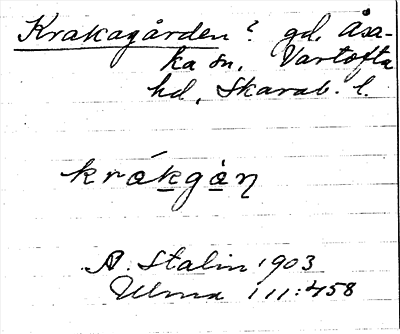 Krakagården? gd, Åsa-
ka sn, Vartofta
hd, Skarab. l.
krákgàn
A. Stalin 1903
Ulma 111:458